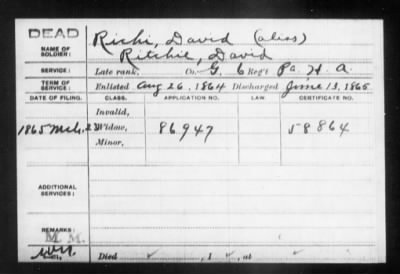 DEAD
NAME OF SOLDIER: Richi, David (alias)
Ritchie, David
SERVICE: Late rank, Co. G, 6 Reg't Pa. H. A.
TERM OF SERVICE: Enlisted Aug 26, 1864 Discharged June 13, 1865
DATE OF FILING. CLASS. APPLICATION NO. LAW. CERTIFICATE NO.
Invalid,
1865 Mch. Widow, 86.947 58864
Minor,
ADDITIONAL SERVICES:
REMARKS:
M. M.
Died , 1 , at